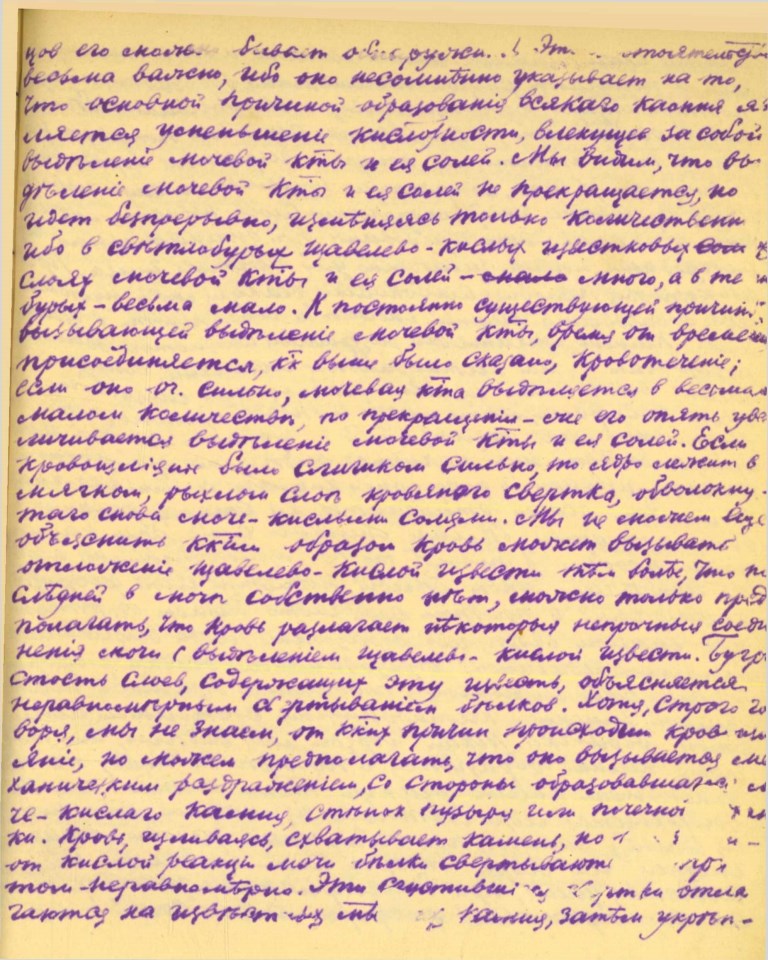 цов его мочи бывает
весьма важно, ибо оно несомнѣнно указываетъ на то,
что основной причиной образованія всякаго камня яв
ляется уменьшеніе кислотности, влекущее за собой
выдѣленіе мочевой кты и ея солей. Мы видим, что вы
дѣленіе мочевой кты и ея солей не прекращается, но
идет безпрерывно, измѣняясь только количественн
ибо в свѣтлобурых щавелево-кислых известковых
слоях мочевой кты и ея солей - много, а в те
бурых - весьма мало. К постоянно существующей причинѣ,
вызывающей выдѣленіе мочевой кты, время от времени
присоединяется, кк выше было сказано, кровотеченіе;
если оно оч. сильно, мочевая кта выдѣляется в весьма
малом количествѣ, по прекращеніи - же его опять уве
личивается выдѣленіе мочевой кты и ея солей. Если
кровоизліяніе было слишком сильно, то ядро лежит в
мягком, рыхлом слоѣ кровяного свертка, обволокну-
таго снова моче-кислыми солями. Мы не можем еще
объяснить кким образом кровь может вызывать
отложеніе щавелево-кислой извести тѣм болѣе, что по
слѣдней в мочѣ собственно нѣт, можно только пред
полагать, что кровь разлагает нѣкоторыя непрочныя соеди
ненія мочи с выдѣленіем щавелево-кислой извести. Бугри
стость слоев, содержащих эту известь, объясняется
неравномѣрным свертываніем бѣлков. Хотя, строго го
воря, мы не знаем, от кких причин происходит кровоиз
ліяніе, но можем предполагать, что оно вызывается ме
ханическим раздраженіем, со стороны образовавшагося м
че-кислаго камня, стѣнок пузыря или почечной
ки. Кровь, изливаясь, схватывает камень, но
от кислой реакціи мочи бѣлки свертываются при
том неравномѣрно. Эти свертки отла
гаются на камня, затѣм укрѣп-